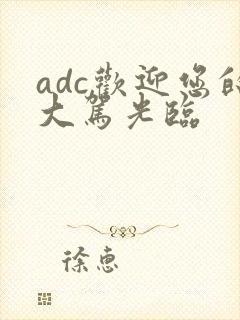 adc歡迎您的
大駕光臨
徐惠